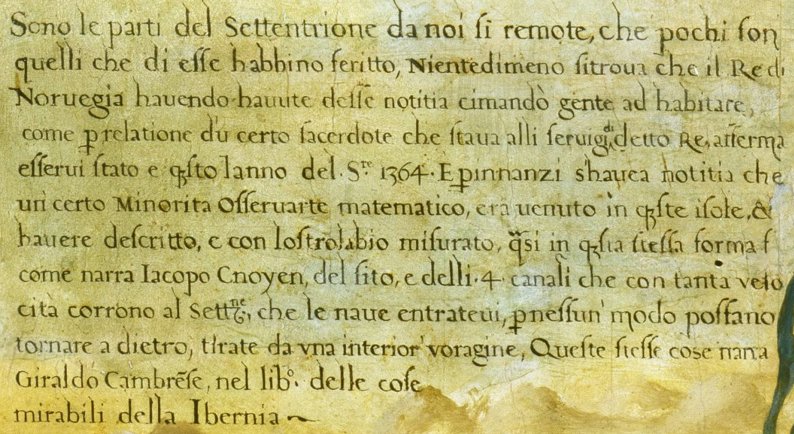 Sono le parti del Settentrione da noi si remote, che pochi son
quelli che di esse habbino scritto, Nientedimeno si troua che il Re di
Noruegia hauendo hauute desse notitia ci mandò gente ad habitare,
come p relatione d'ũ certo sacerdote che staua alli seruigi di detto Re, afferma
esserui stato e q̃sto lanno del . S.re 1364 . E p innanzi s'hauea notitia che
un certo Minorita Osseruãte matematico, era uenuto in q̃ste isole, &
hauere descritto, e con lostrolabio misurato, q̃si in q̃sta stessa forma
come narra Iacopo Cnoyen, del sito, e delli . 4 . canali che con tanta velo
cità corrono al Sett.ne, che le naue entrateui, p nessun' modo possano
tornare a dietro, tirate da vna interior' voragine, Queste stesse cose narra
Giraldo Cambrẽse, nel lib.o delle cose
mirabili della Ibernia ~